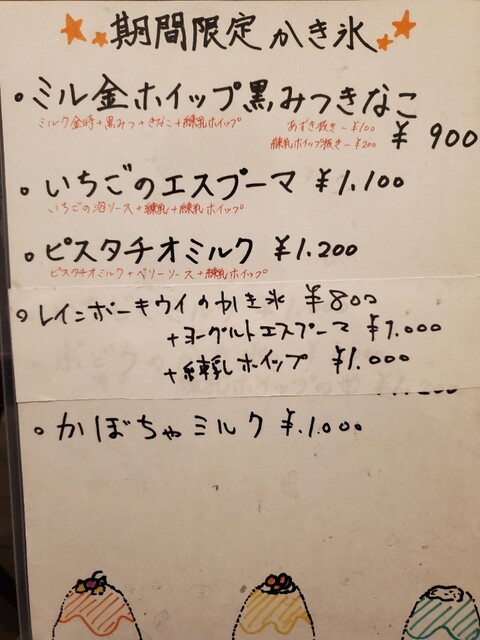 期間限定かき氷
・ミル金ホイップ黒みつきなこ
ミルク金時+黒みつ+きなこ+練乳ホイップ
あずき抜き-¥100
練乳ホイップ抜き-¥200
¥900
・いちごのエスプーマ ¥1.100
いちごの泡ソース+練乳+練乳ホイップ
・ピスタチオミルク ¥1.200
ピスタチオミルク+ベリーソース+練乳ホイップ
・レインボーキウイのかき氷 ¥800
+ヨーグルトエスプーマ ¥1.000
+練乳ホイップ ¥1.000
・かぼちゃミルク ¥.1.000